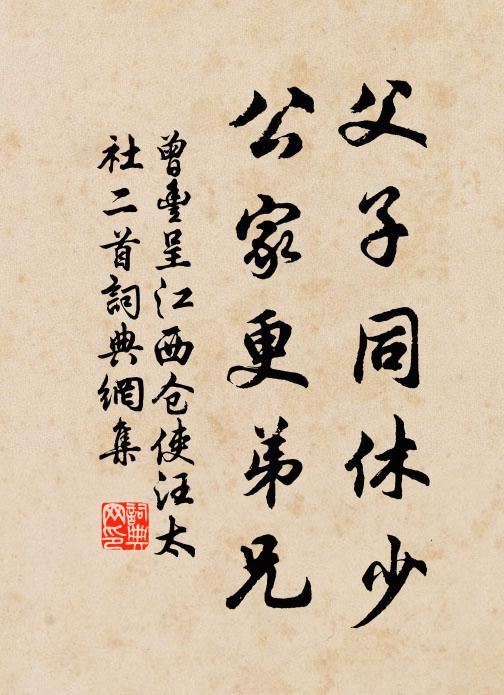 父子同休少
公家更弟兄
曾豐呈江西仓使汪太
社二首詞典網集
詞典
网印